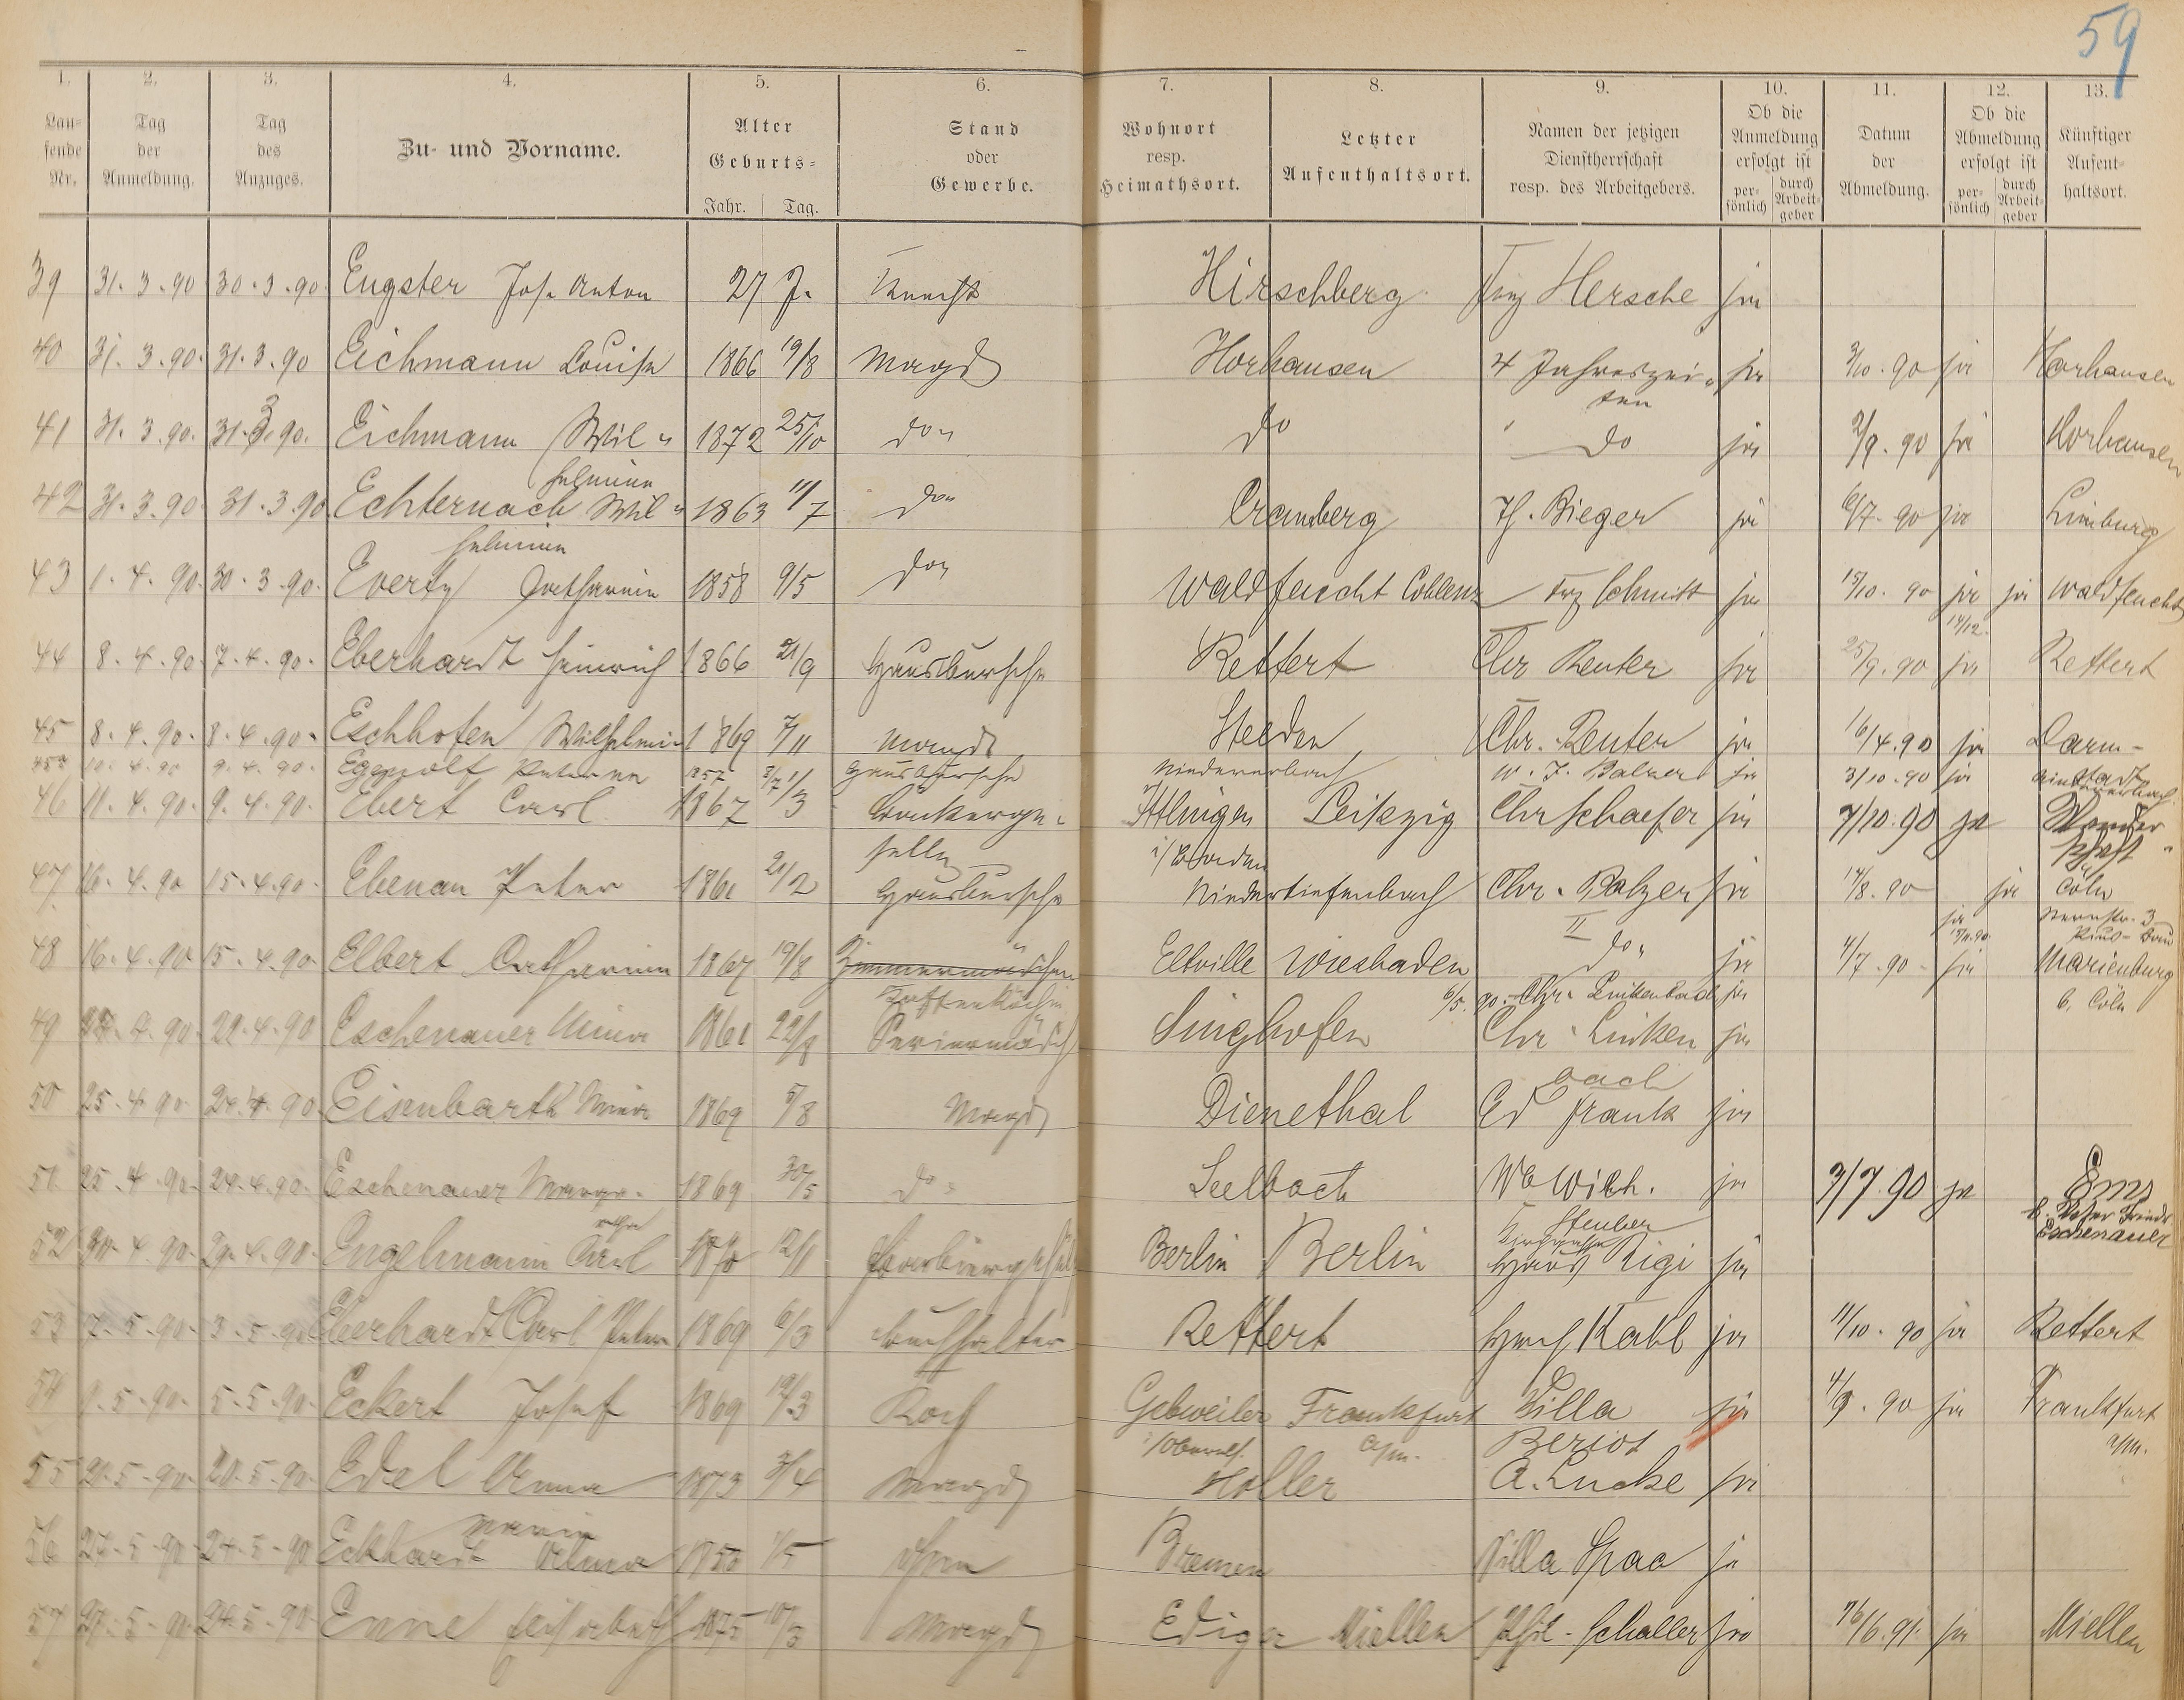 59
1. 2. 3. 4. 5. 6. 7. 8. 9. 10. 11. 12. 13.
Lau-fende Nr. Tag der Anmeldung. Tag des Anzuges. Zu- und Vorname. Alter Geburts- Jahr. Tag. Stand oder Gewerbe. Wohnort resp. Heimathsort. Letzter Aufenthaltsort. Namen der jetzigen Dienstherrschaft resp. des Arbeitgebers. Ob die Anmeldung erfolgt ist per-sönlich durch Arbeit-geber Datum der Abmeldung. Ob die Abmeldung erfolgt ist per-sönlich durch Arbeit-geber Künftiger Aufent-haltsort.
39 31.3.90 30.3.90. Engster Jos. Anton 27 J. Knecht Hirschberg Frz Hersche ja
40 31.3.90. 31.3.90 Eichmann Louise 1866 19/8 Magd Horhausen 4 Jahreszei- ja 3/10.90 ja Horhausen
ten
41 31.3.90. 31.3.90. Eichmann Wil- 1872 25/10 do do do ja 2/9.90 ja Horhausen
helmine
42 31.3.90 31.3.90 Echternach Wil- 1863 11/7 do Cramberg H. Bieger ja 6/7.90 ja Limburg
helmine
43 1.4.90. 30.3.90. Everty Catharine 1858 9/5 do Waldfeucht Coblenz Frz Schmitt ja 15/10.90 ja ja Waldfeucht
14/12.
44 8.4.90 7.4.90. Eberhardt Heinrich 1866 21/9 Hausbursche Rettert Chr Reuter ja 25/9.90 ja Rettert
45 8.4.90. 8.4.90. Eschhofen Wilhelmine 1869 7/11 Magd Steeden Chr. Reuter ja 16/4.90 ja Darm-
stadt
9.4.90. 1857 Hausbursche W. F. Balzer ja 3/10.90 ja
46 11.4.90. 9.4.90. Ebert Carl 1867 1/3 Leipzig Chr Schaefer ja 7/10.90 ja
i/Baden
47 16.4.90 15.4.90. Ebenau Peter 1861 21/2 Hausbursche Niedertiefenbach Chr. Balzer ja 14/8.90 ja Cöln
II
48 16.4.90 15.4.90. Elbert Catharine 1867 19/8 Eltville Wiesbaden do ja 4/7.90 ja Marienburg
b. Cöln
Kaffeeköchin 6/5.90. Chr. Linkenbach ja
49 22.4.90 Eschenauer Mina 1861 22/8 Singhofen Chr. Linken ja
bach
50 25.4.90 24.4.90. Eisenbarth Mina 1869 5/8 Magd Dienethal Ed Frank ja
51 25.4.90. 24.4.90. Eschenauer Marga- 1869 30/5 do Seelbach Ww Wilh. ja 3/7.90 ja Ems
retha Steuber b. Vater Friedr Eschenauer
52 30.4.90 29.4.90. Engelmann Carl 1870 12/1 Berlin Berlin Haus Rigi ja
53 3.5.90. Eberhardt Carl Peter 1869 6/3 Buchhalter Rettert Hch Kahl ja 11/10.90 ja Rettert
54 5.5.90. Eckert Josef 1869 19/3 Koch Gebweiler Frankfurt Villa ja 4/9.90 ja Frankfurt
a/m. Beriot a/m.
55 20.5.90. Edel Anna 1873 3/4 Magd Holler A. Lucke ja
Maria
56 24.5.90 24.5.90 Eckhardt 1/5 ohne Bremen Villa Spaa ja
57 27.5.90 Enne Elisabeth 1875 10/3 Magd Ediger Miellen Phil. Schaller ja 16/6.91. ja Miellen